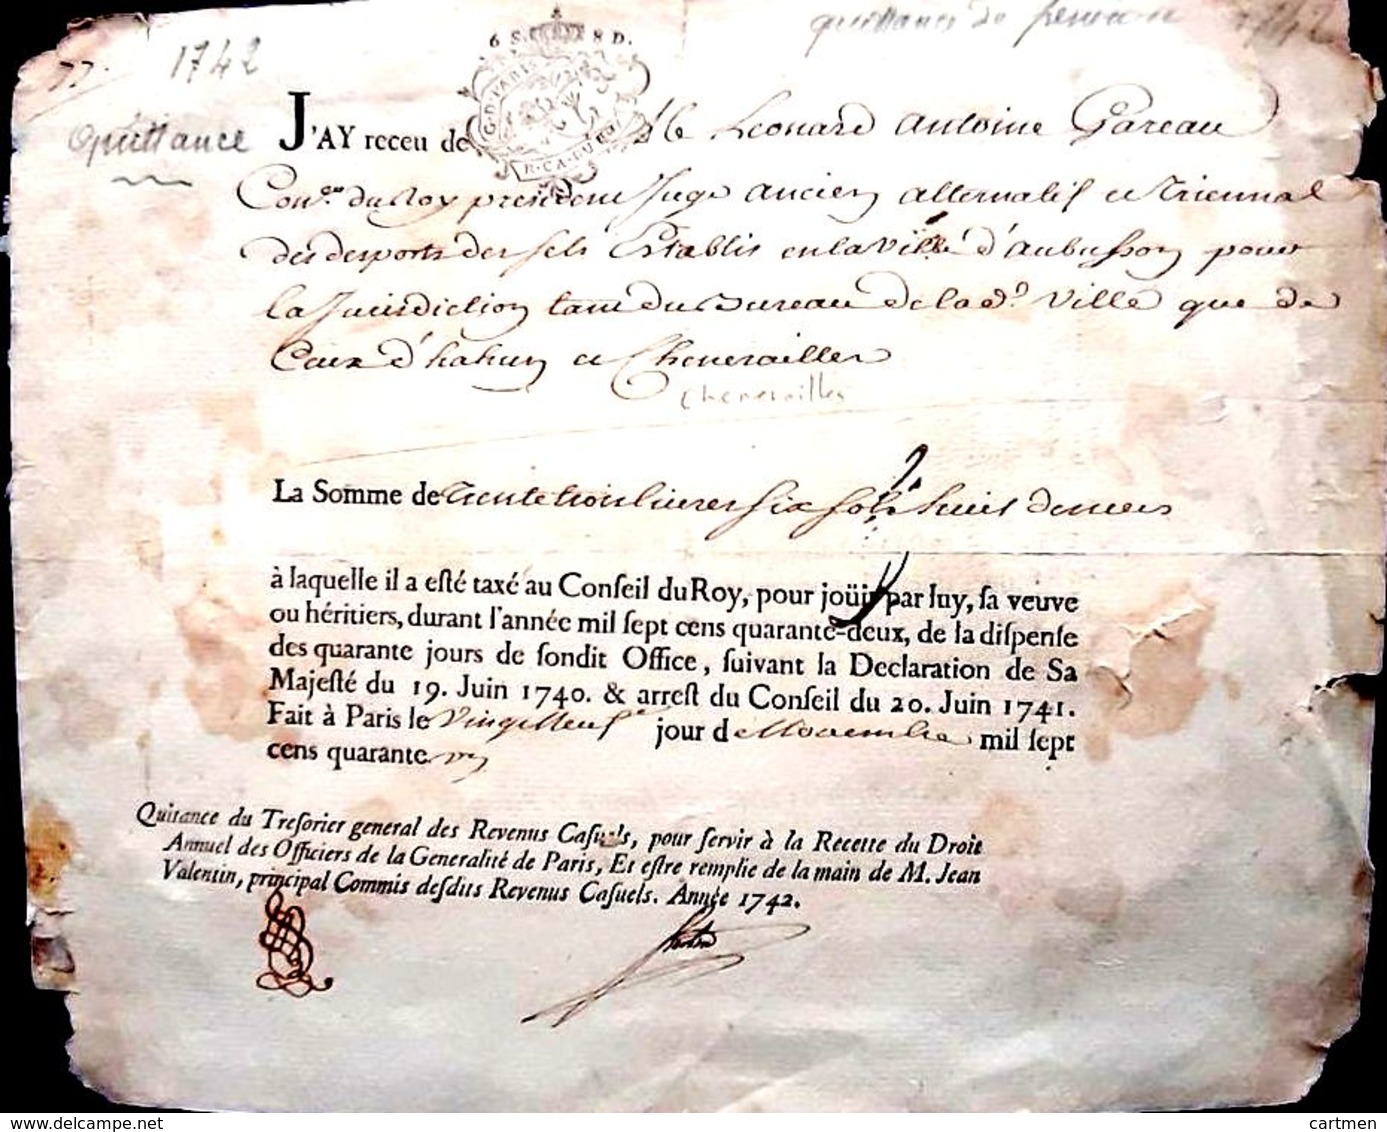 77.
1742
quittances de 1742
6 S. 8 D.
G.D. PARIS
Quittance
J'AY receu de Me Leonard Antoine Gareau
Conr. du Roy president Juge ancien alternatif et Triennal
des desposts des sels Establis en la ville d'aubusson pour
la Jurisdiction tant du Bureau de lad. Ville que de
Ceux d'hahun et Chenerailles
Chenerailles
La Somme de Trente trois livres six sols huit deniers
à laquelle il a eſté taxé au Conſeil du Roy, pour joüir par luy, ſa veuve
ou héritiers, durant l'année mil ſept cens quarante-deux, de la diſpenſe
des quarante jours de ſondit Office, ſuivant la Declaration de Sa
Majeſté du 19. Juin 1740. & arreſt du Conſeil du 20. Juin 1741.
Fait à Paris le Vingt Neuf e jour de Novembre mil ſept
cens quarante un
Quitance du Treſorier general des Revenus Caſuels, pour ſervir à la Recette du Droit
Annuel des Officiers de la Generalité de Paris, Et eſtre remplie de la main de M. Jean
Valentin, principal Commis deſdits Revenus Caſuels. Année 1742.
cartmen